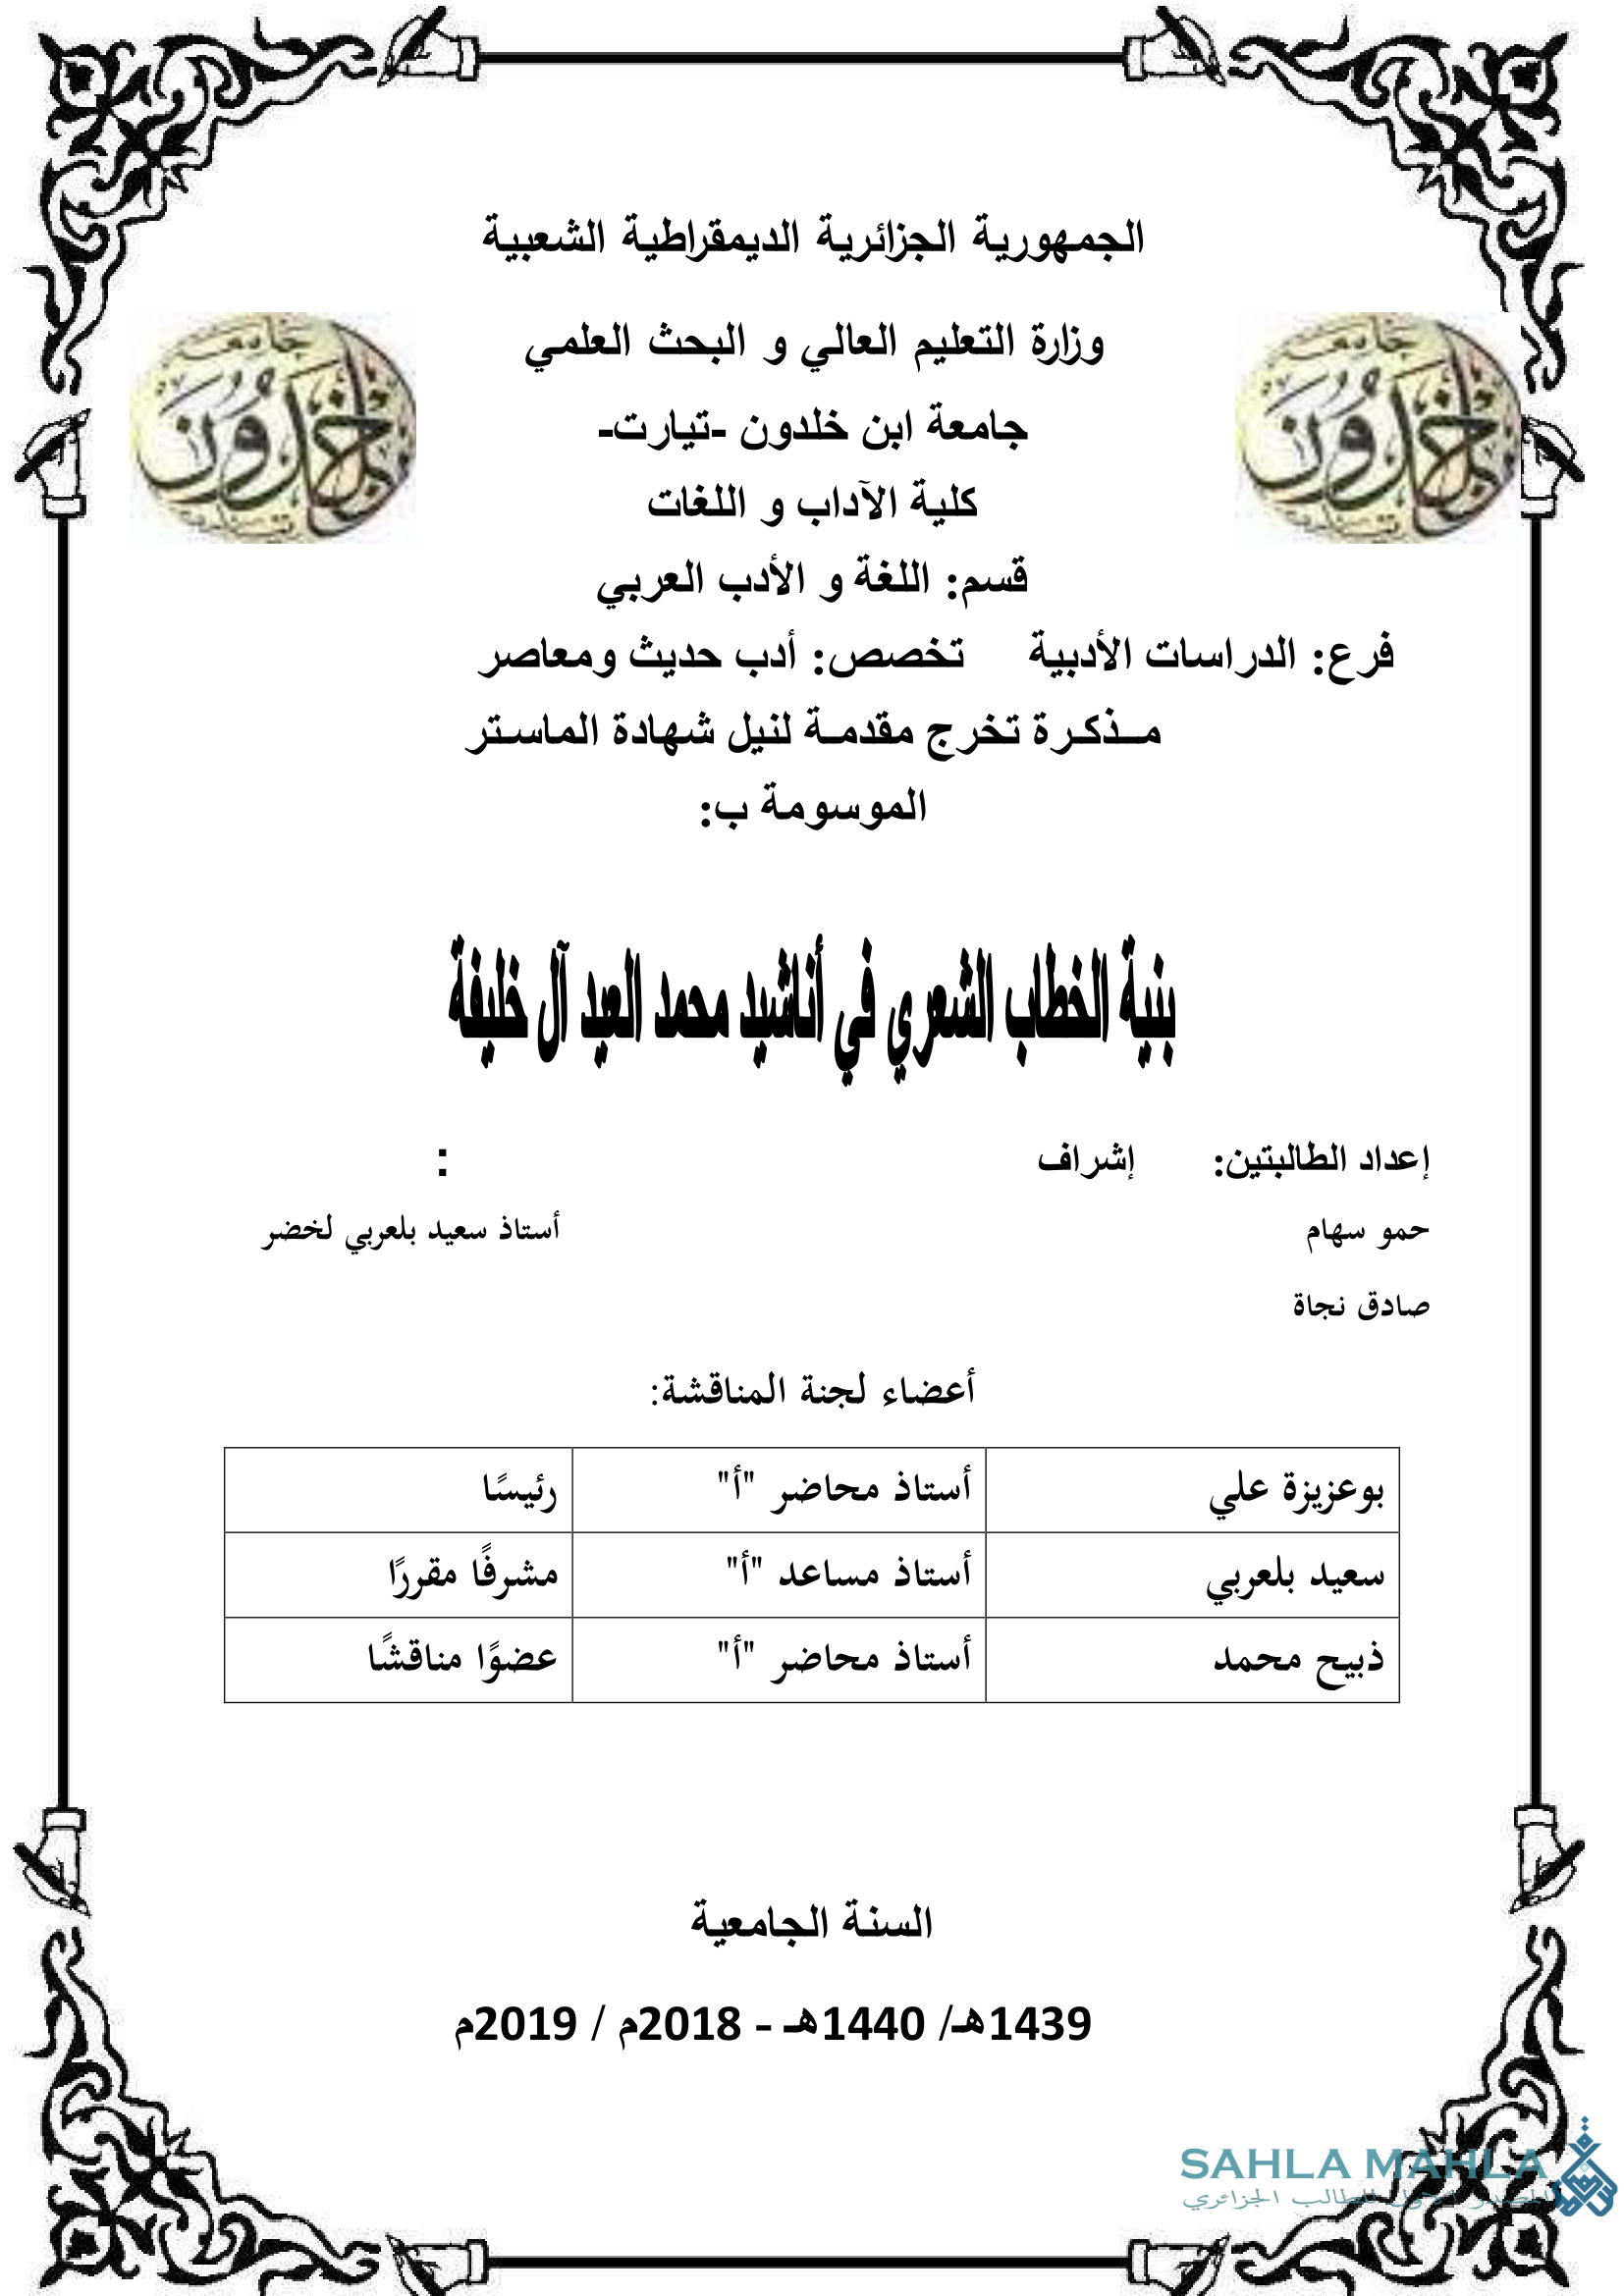 الجمهورية الجزائرية الديمقراطية الشعبية
وزارة التعليم العالي و البحث العلمي
جامعة ابن خلدون -تيارت-
كلية الآداب و اللغات
قسم: اللغة و الأدب العربي
فرع: الدراسات الأدبية تخصص: أدب حديث ومعاصر
مــذكـرة تخرج مقدمـة لنيل شهادة الماسـتر
الموسومة ب:
بنية الخطاب الشعري في أناشيد محمد العيد آل خليفة
إعداد الطالبتين: إشراف :
حمو سهام أستاذ سعيد بلعربي لخضر
صادق نجاة
أعضاء لجنة المناقشة:
بوعزيزة علي أستاذ محاضر "أ" رئيسًا
سعيد بلعربي أستاذ مساعد "أ" مشرفًا مقررًا
ذبيح محمد أستاذ محاضر "أ" عضوًا مناقشًا
السنة الجامعية
1439هـ/ 1440هـ - 2018م / 2019م
SAHLA MAHLA
المصدر الأول للطالب الجزائري